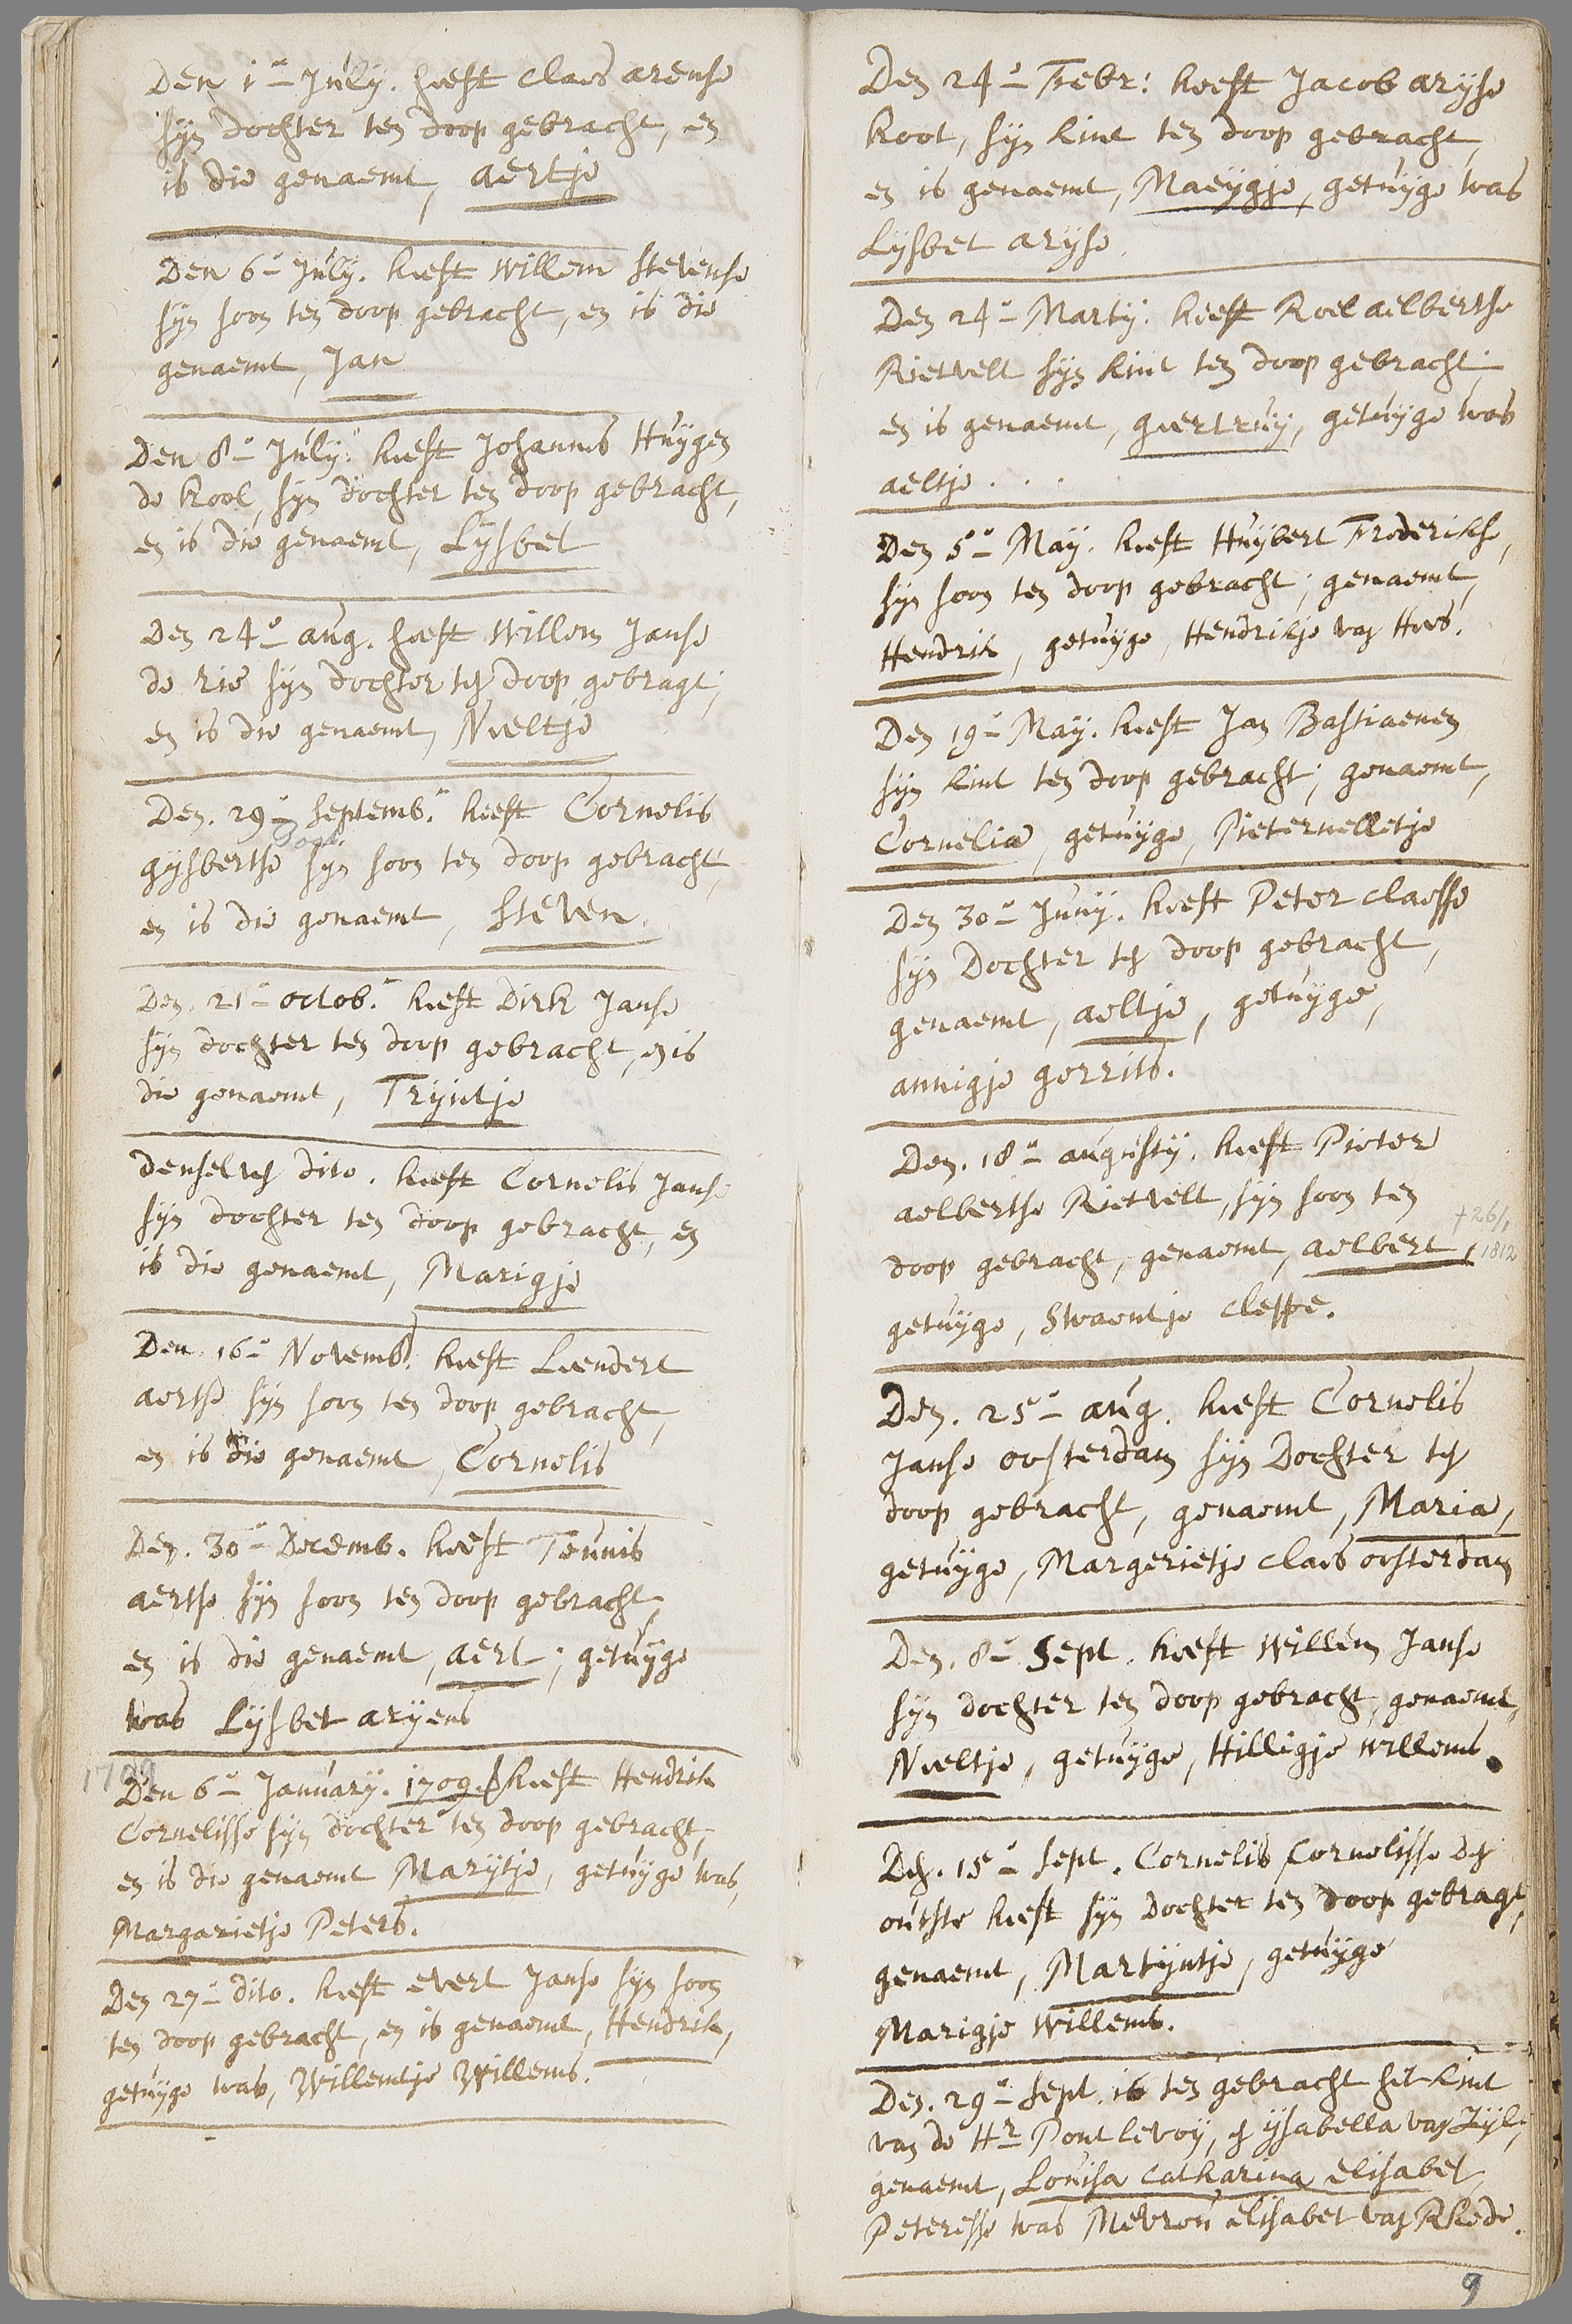 Den 1e July. heeft claes arense
sijn dochter ten doop gebracht, en
is die genaemt, aertje
Den 6e July. heeft willem stevense
sijn soon ten doop gebracht, en is die
genaemt, Jan
Den 8e July. heeft Johannes Huijgen
de kool, sijn dochter ten doop gebracht,
en is die genaemt, Lijsbet
Den 24e aug. heeft willem Janse
de rie sijn dochter ten doop gebragt;
en is die genaemt, Neeltje
Den. 29e septemb. heeft Cornelis
gijsbertse sijn soon ten doop gebracht,
en is die genaemt, steven.
Den. 21e octob. heeft Dirk Janse
sijn dochter ten doop gebracht, en is
die genaemt, Trijntje
denselven dito. heeft Cornelis Janse
sijn dochter ten doop gebracht, en
is die genaemt, Marigje
Den 16e Novemb. heeft Leendert
aertse sijn soon ten doop gebracht,
en is die genaemt, Cornelis
Den. 30e Decemb. heeft Teunis
aertse sijn soon ten doop gebracht,
en is die genaemt, aert; getuijge
was Lijsbet arijens
1709
Den 6e January. 1709. heeft Hendrik
Cornelisse sijn dochter ten doop gebracht,
en is die genaemt Marijtje, getuijge was,
Margarietje Peters.
Den 27e dito. heeft evert Janse sijn soon
ten doop gebracht, en is genaemt, Hendrik,
getuijge was, Willemtje Willems.
Den 24e Febr: heeft Jacob arijse
koot, sijn kint ten doop gebracht,
en is genaemt, Maeijgje, getuijge was
Lijsbet arijse.
Den 24e Martij. heeft Roel aelbertse
Rietvelt sijn kint ten doop gebracht;
en is genaemt, geertruij, getuijge was
aeltje . . .
Den 5e Maij. heeft Huijbert Frederikse,
sijn soon ten doop gebracht; genaemt,
Hendrik, getuijge, Hendrikje van Hees.
Den 19e Maij. heeft Jan Bastiaenen
sijn kint ten doop gebracht; genaemt,
Cornelia, getuijge, Pieternelletje
Den 30e Junij. heeft Peter claesse
sijn Dochter ten doop gebracht,
genaemt, aeltje, getuijge,
annigje gerrits.
Den. 18e augusty. heeft Pieter
aelbertse Rietvelt, sijn soon ten
doop gebracht, genaemt, aelbert,
† 26/1 1812
getuijge, Swaentje cleppe.
Den. 25e aug. heeft Cornelis
Janse oosterdam sijn Dochter ten
doop gebracht, genaemt, Maria,
getuijge, Margerietje claes oosterdam
Den. 8e Sept. heeft willem Janse
sijn dochter ten doop gebracht, genaemt,
Neeltje, getuijge, Hilligje willems.
Den. 15e sept. Cornelis Cornelisse den
outste heeft sijn Dochter ten doop gebragt,
genaemt, Martijntje, getuijge
Marigje willems.
Den. 29e sept. is ten gebracht het kint
van de Hr Pont levoij, en ijsabella van Zijl,
genaemt, Louisa catharina elisabet,
Peteresse was Mevrou elisabet van Rhede.
9